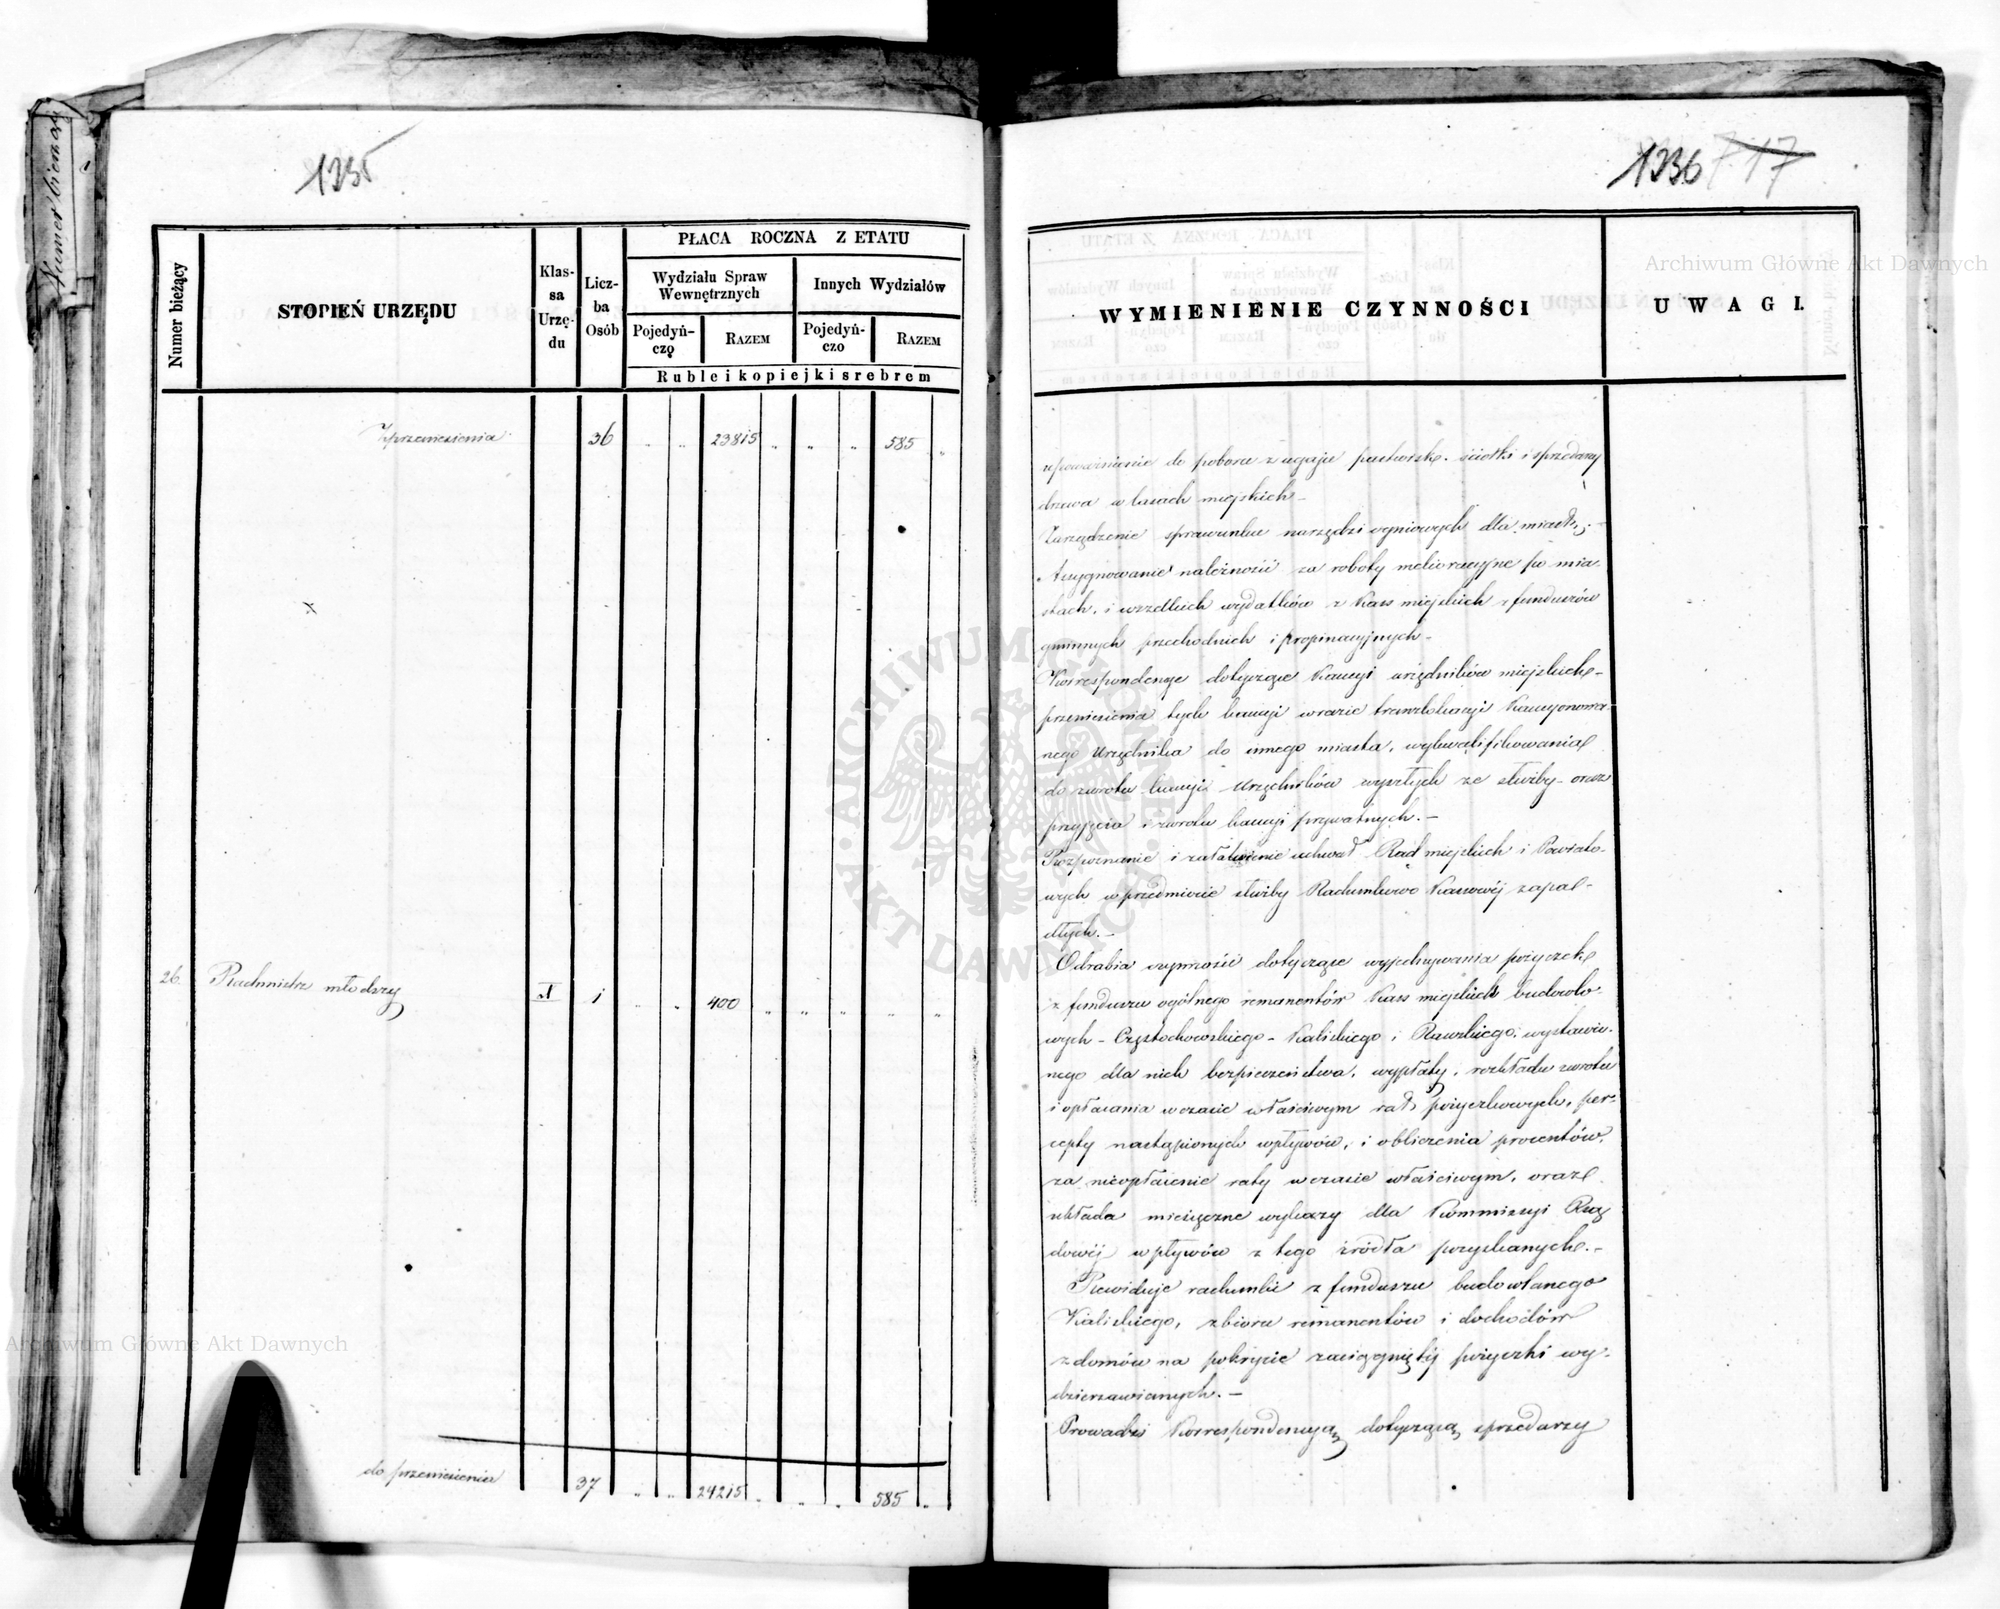 Numer bieżący
1235
Numer bieżący
STOPIEŃ URZĘDU
Klas-
sa
Urzę-
du
Licz-
ba
Osób
PŁACA ROCZNA Z ETATU
Wydziału Spraw
Wewnętrznych
Innych Wydziałów
Pojedyń-
czo
RAZEM
Pojedyń-
czo
RAZEM
Ruble i kopiejki srebrem
Z przeniesienia 36 „ „ 23815 „ „ „ 585 „
26 Rachmistrz młodszy X 1 „ „ 400 „ „ „ „ „
do przeniesienia 37 „ „ 24215 „ „ „ 585 „
1236 717
WYMIENIENIE CZYNNOŚCI
UWAGI.
upoważnienie do poboru z ugaju pastwisk. ściółki i sprzedaży
drzewa w lasach miejskich –
Zarządzenie sprawunku narzędzi ogniowych dla miast, –
Assygnowanie należności za roboty melioracyjne po mia-
stach, i wszelkich wydatków z Kass miejskich z funduszów
gminnych przechodnich i propinacyjnych –
Korrespondencye dotyczące Kaucyi urzędników miejskich –
przeniesienia tych kaucyi w razie translokacyi Kaucyonowa-
nego Urzędnika do innego miasta, wykwalifikowania
do zwrotu kaucyi Urzędników wyszłych ze służby – oraz
przyjęcia i zwrotu kaucyi prywatnych. –
Rozpoznanie i załatwienie uchwał Rad miejskich i Powiato-
wych w przedmiocie służby Rachunkowo Kassowéj zapa-
dłych. –
Odrabia czynności dotyczące wyjednywania pożyczek
z funduszu ogólnego remanentów Kass miejskich budowlo-
wych – Częstochowskiego – Kaliskiego i Rawskiego, wystawio-
nego dla nich bezpieczeństwa, wypłaty, rozkładu zwrotu
i opłacania w czasie właściwym rat pożyczkowych, per-
cepty nastąpionych wpływów, i obliczenia procentów,
za nieopłacenie raty w czasie właściwym, oraz
układa miesięczne wykazy dla Kommissyi Rzą
dowéj wpływów z tego źródła pozyskanych. –
Rewiduje rachunki z funduszu budowlanego
Kaliskiego, zbioru remanentów i dochodów
z domów na pokrycie zaciągniętéj pożyczki wy-
dzierżawianych. –
Prowadzi Korrespondencyą dotyczącą sprzedaży
Archiwum Główne Akt Dawnych
Archiwum Główne Akt Dawnych
ARCHIWUM GŁÓWNE AKT DAWNYCH